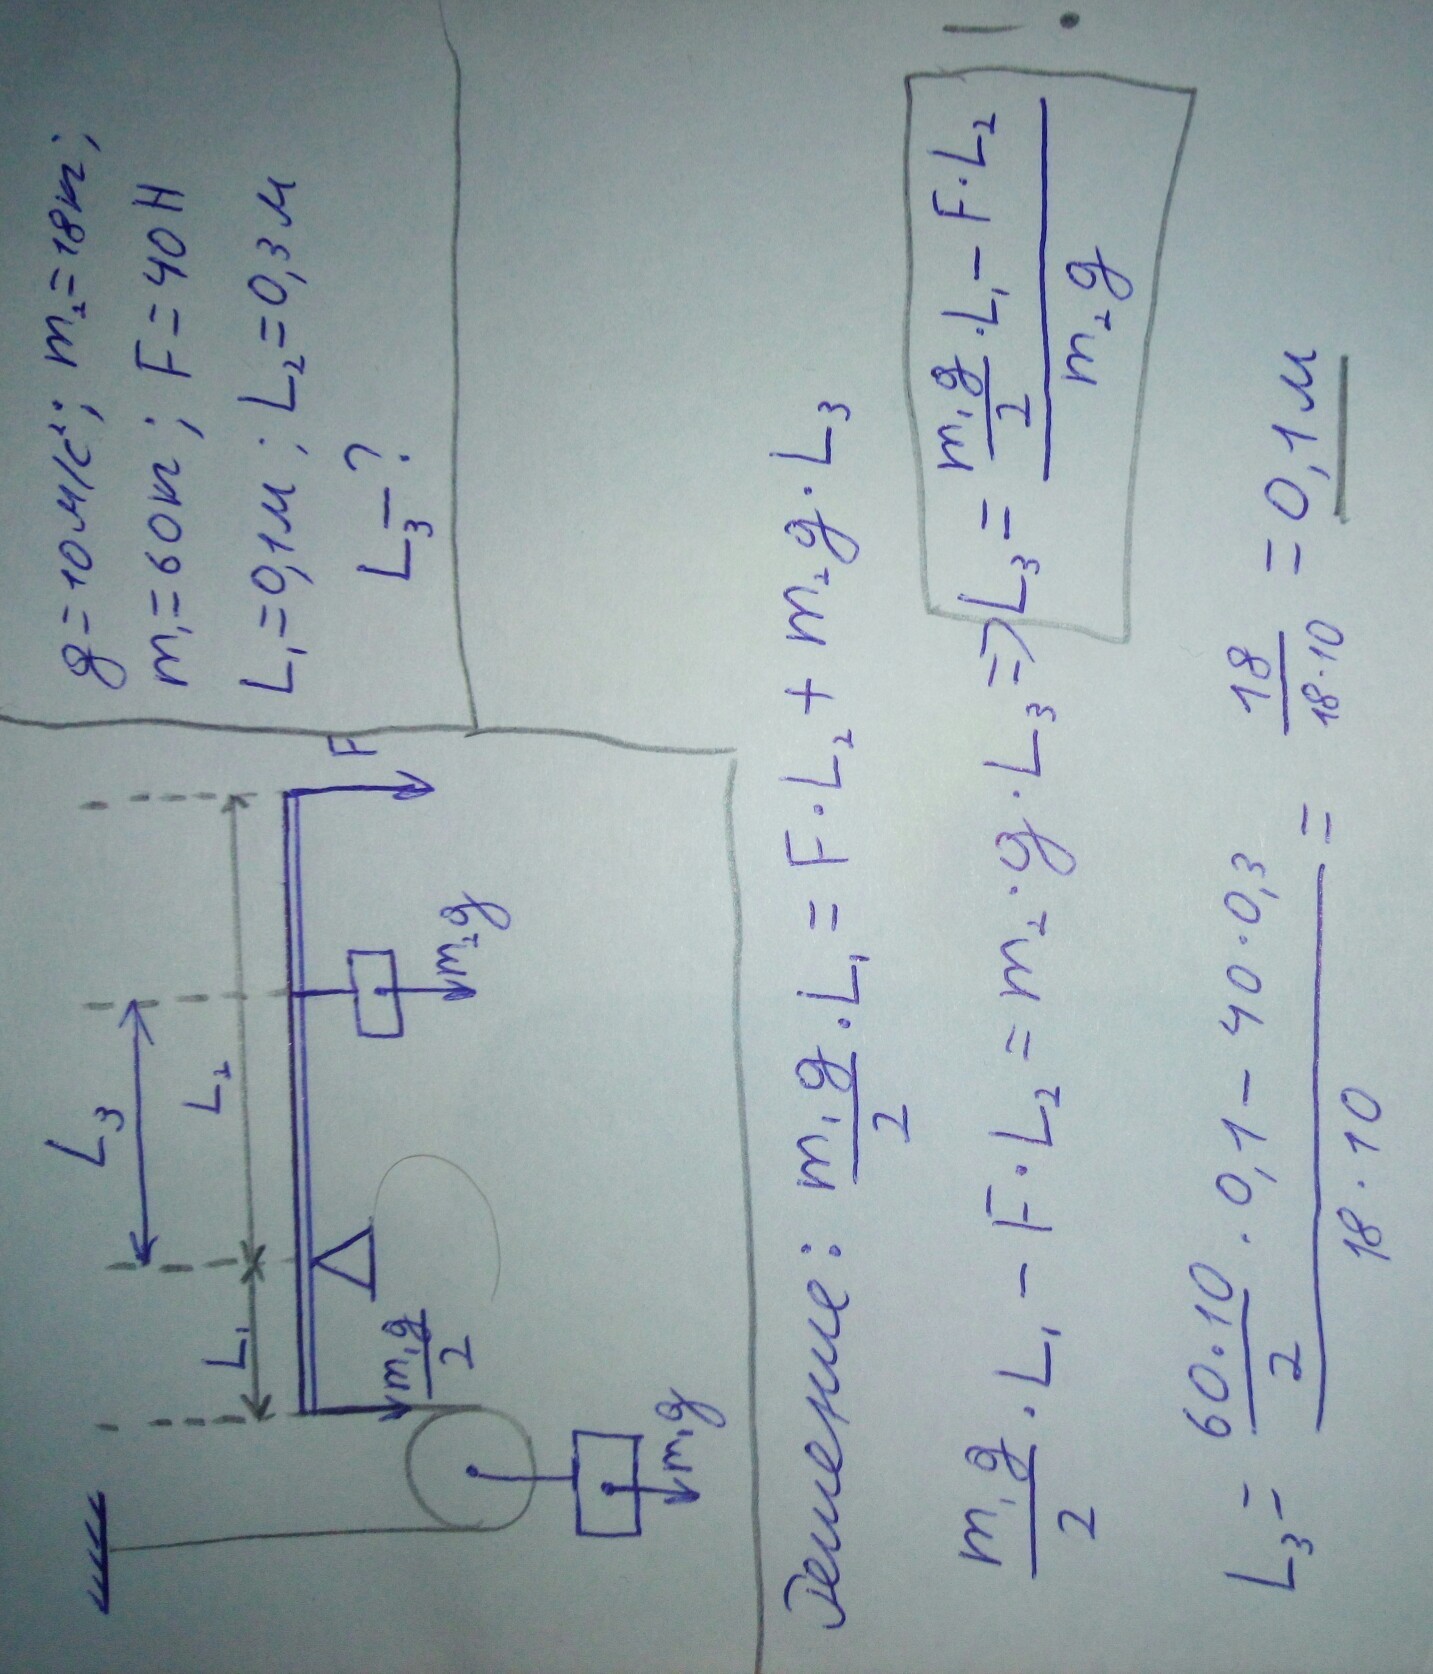 g = 10 м/с²; m₂ = 18 кг;
m₁ = 60 кг; F = 40 Н
L₁ = 0,1 м; L₂ = 0,3 м
L₃ – ?
L₃
L₁ L₂
F
m₁g/2
m₂g
m₁g
Решение: m₁g/2 · L₁ = F · L₂ + m₂g · L₃
m₁g/2 · L₁ – F · L₂ = m₂ · g · L₃ => L₃ = (m₁g/2 · L₁ – F · L₂)/(m₂g) !
L₃ = (60 · 10/2 · 0,1 – 40 · 0,3)/(18 · 10) = 18/(18 · 10) = 0,1 м